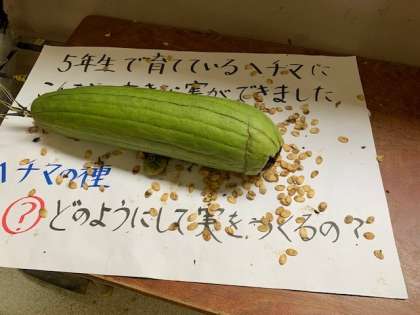 5年生で育ているヘチマに
こんなに大きい実ができました。
ヘチマの種
? どのようにして実をつくるの?